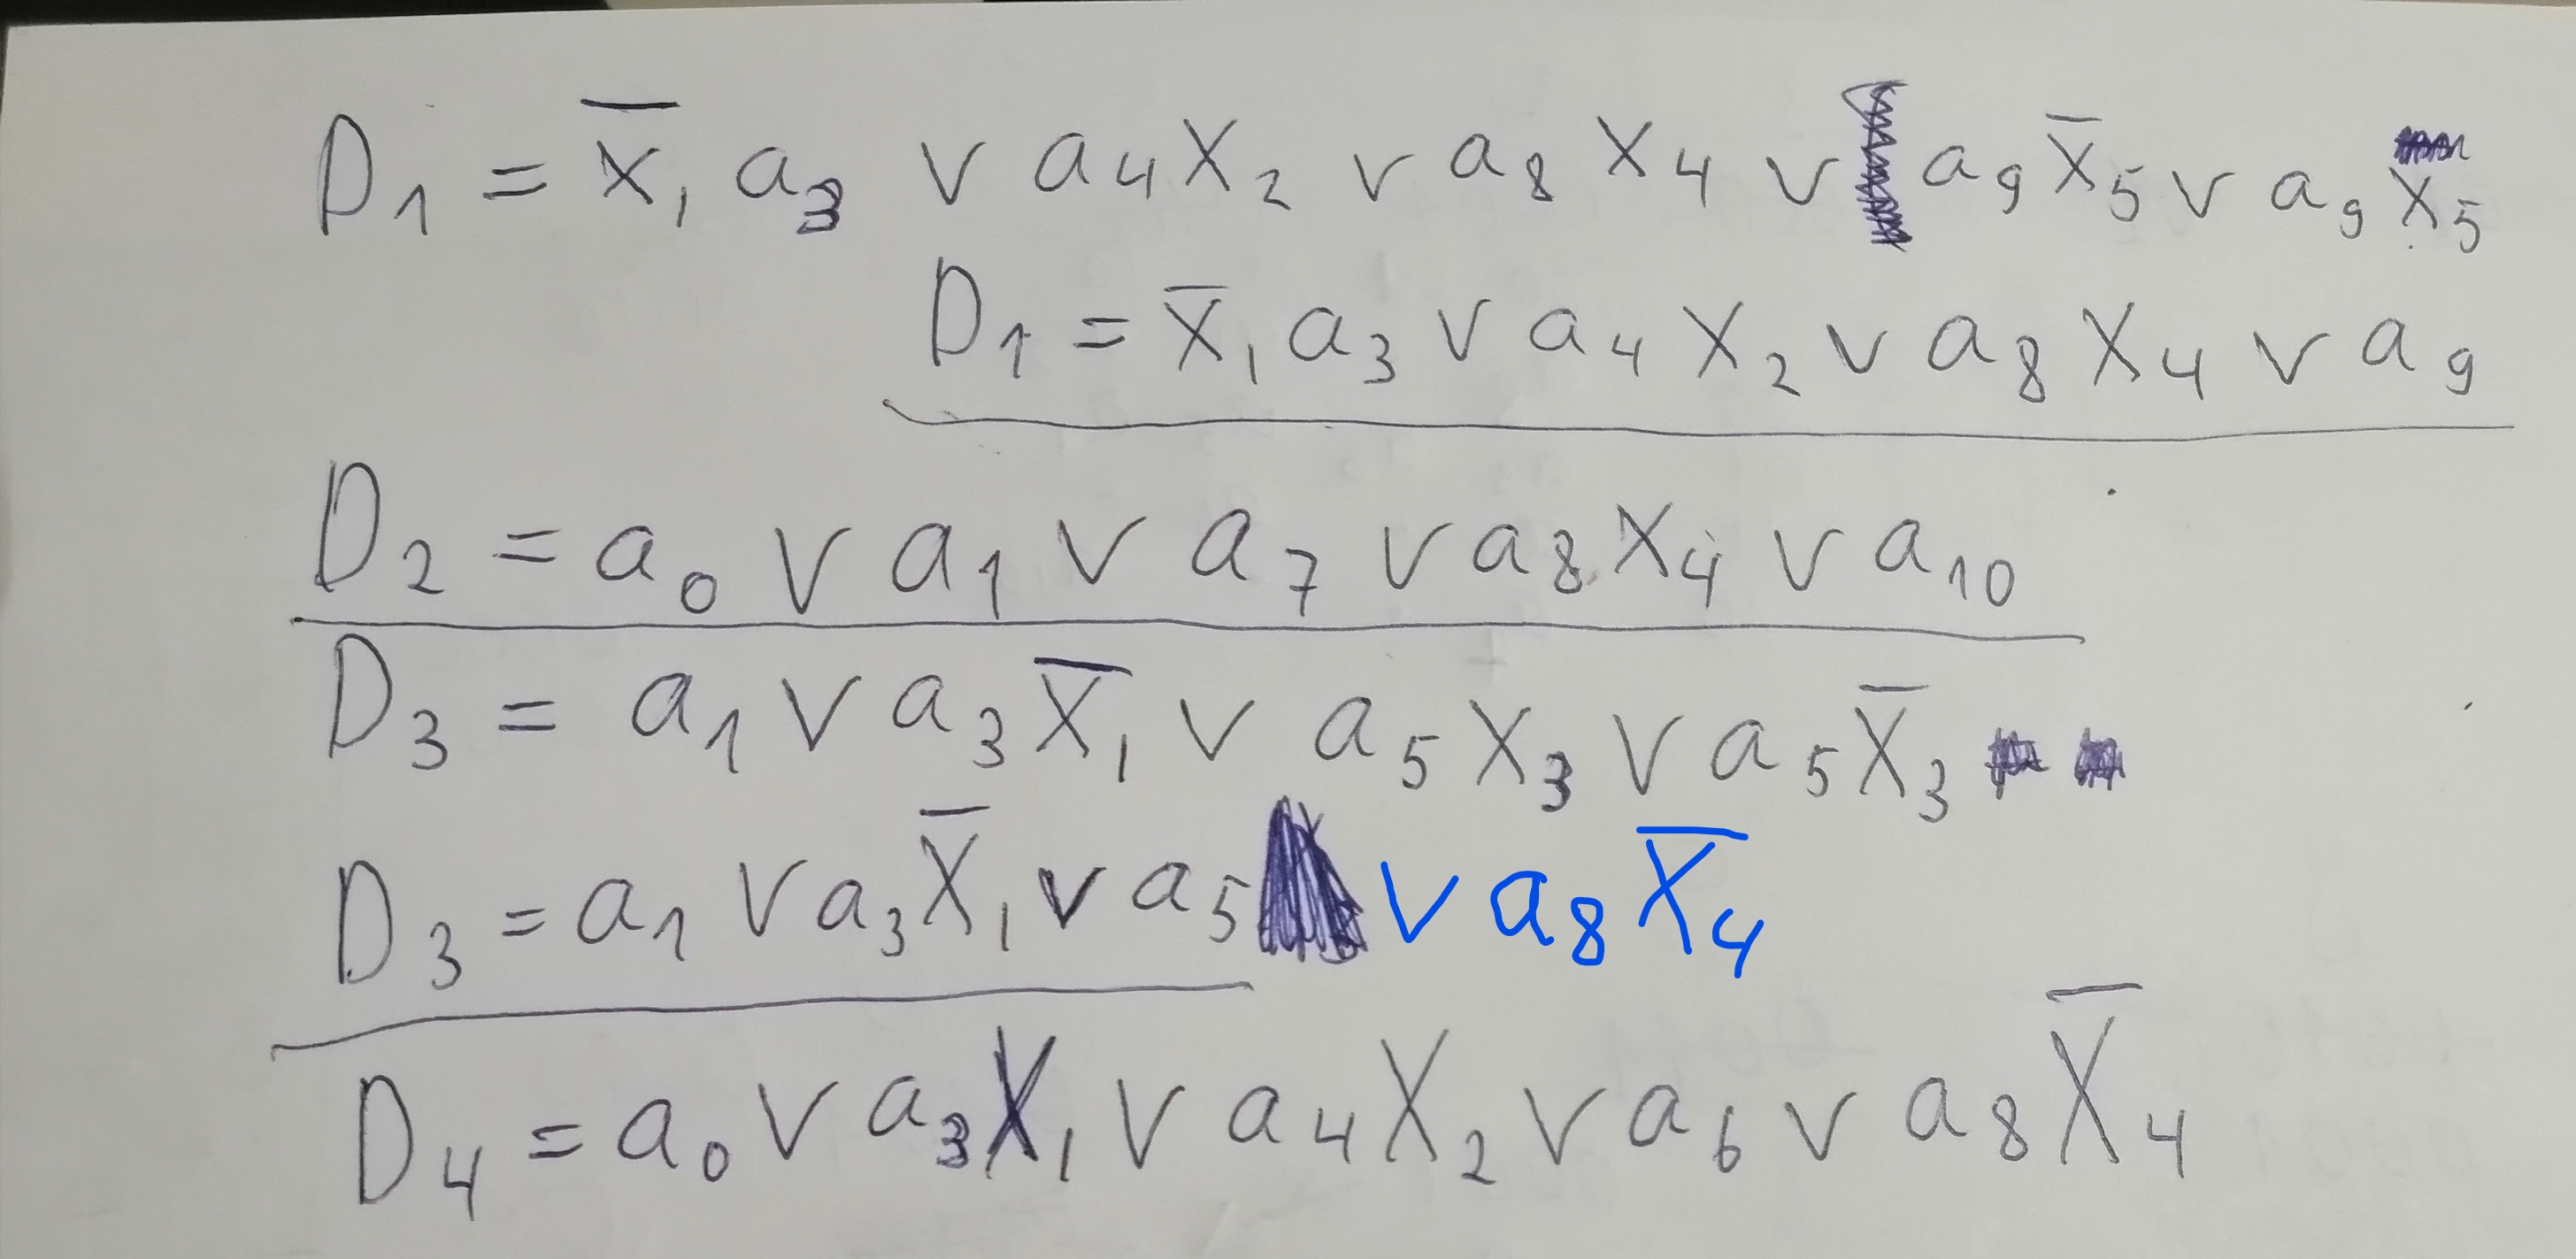 D₁ = x̅₁ a₃ ∨ a₄ x₂ ∨ a₈ x₄ ∨ a₉ x̅₅ ∨ a₉ x₅
D₁ = x̅₁ a₃ ∨ a₄ x₂ ∨ a₈ x₄ ∨ a₉
D₂ = a₀ ∨ a₁ ∨ a₇ ∨ a₈ x₄ ∨ a₁₀
D₃ = a₁ ∨ a₃ x̅₁ ∨ a₅ x₃ ∨ a₅ x̅₃
D₃ = a₁ ∨ a₃ x̅₁ ∨ a₅ ∨ a₈ x̅₄
D₄ = a₀ ∨ a₃ x₁ ∨ a₄ x₂ ∨ a₆ ∨ a₈ x̅₄